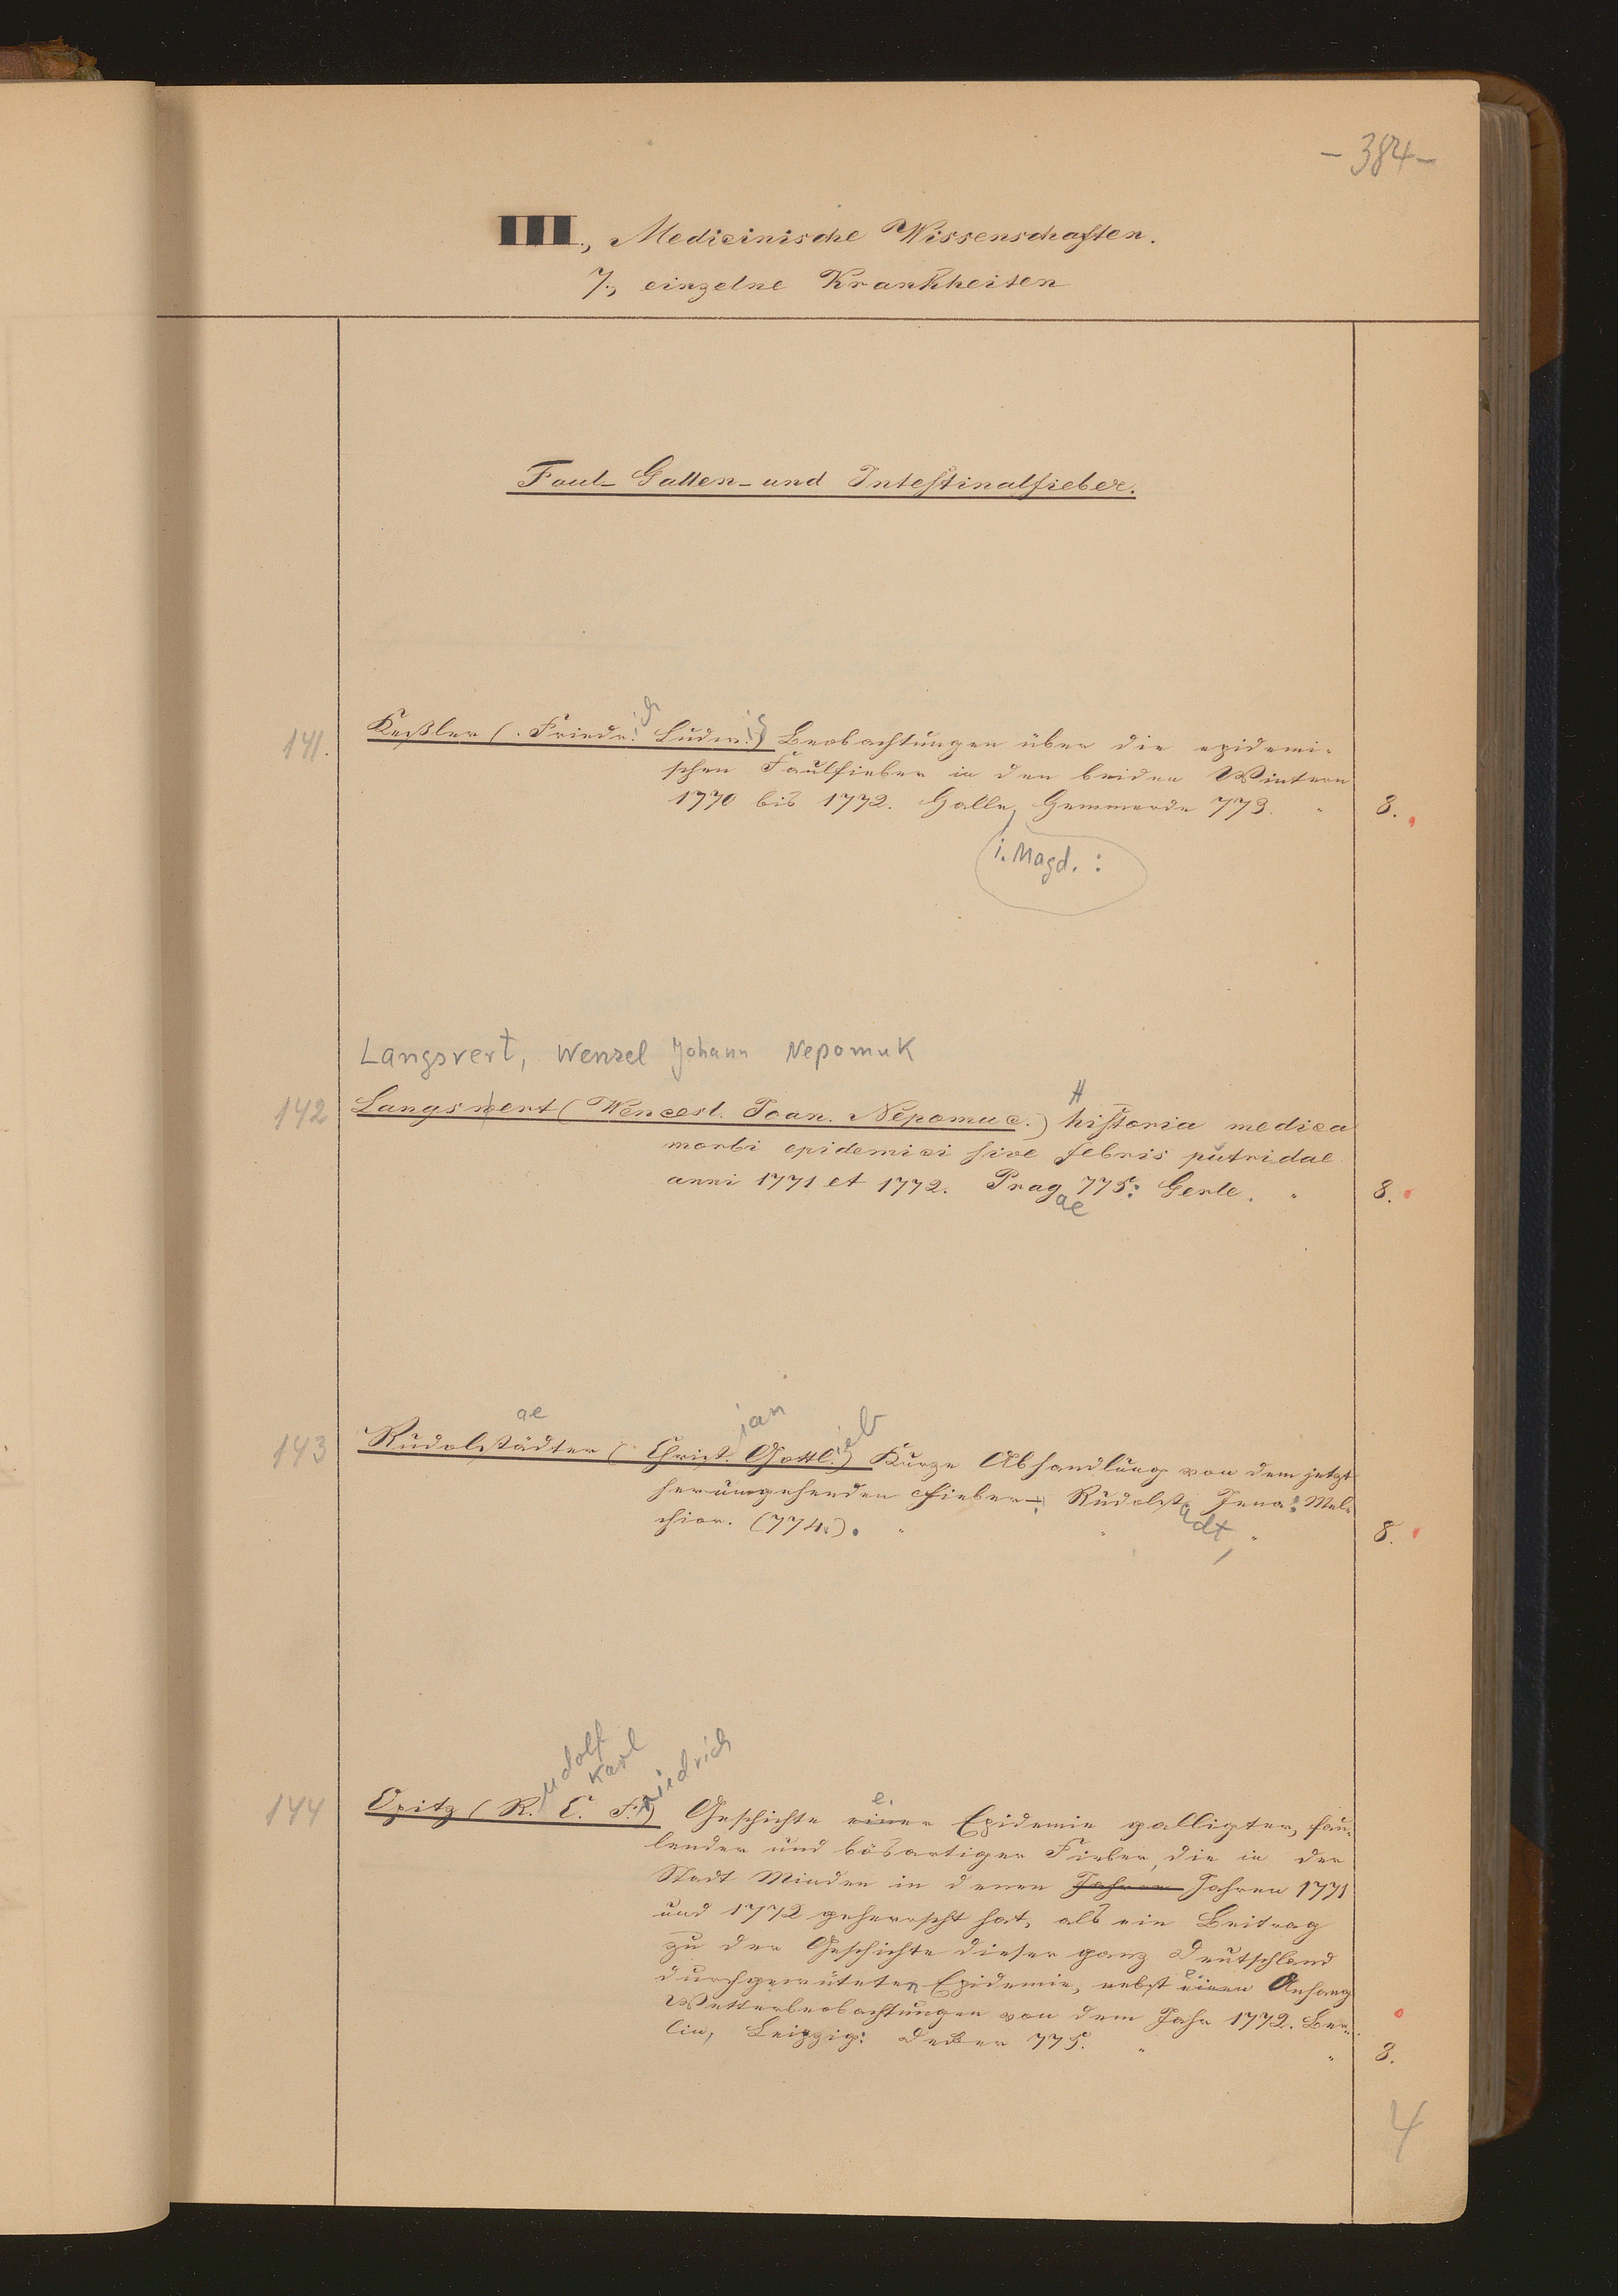 - 384 -
III., Medicinische Wissenschaften.
7., einzelne Krankheiten
Faul- Gallen- und Intestinalfieber.
141. Keßler (Friedr.ich Ludw.ig) Beobachtungen über die epidemi-
schen Faulfieber in den beiden Wintern
1770 bis 1772. Halle, Hemmerde 773. " 8.
i. Magd. :
Langsvert, Wenzel Johann Nepomuk
142 Langswert (Wencesl. Joan. Nepomuc.) historia medica
H
morbi epidemici sive febris putridae
anni 1771 et 1772. Pragae 775: Gerle. " 8.
143 Rudolstädter (Christ.ian Gottl.ieb) Kurze Abhandlung von dem jetzt
ae
herumgehenden Fieber. Rudolstadt, Jena: Mel-
chior. (774.). " " " 8.
144 Opitz (R.udolf C. Karl F.riedrich) Geschichte einer Epidemie galligter, fau-
e.
lender und bösartiger Fieber, die in der
Stadt Minden in denen Jahren Jahren 1771
und 1772 geherrscht hat, als ein Beitrag
zu der Geschichte dieser ganz Deutschland
durchgewüteten Epidemie, nebst einen Anhang
Wetterbeobachtungen von dem Jahr 1772. Ber-
lin, Leipzig: Decker 775. " " 8.
4